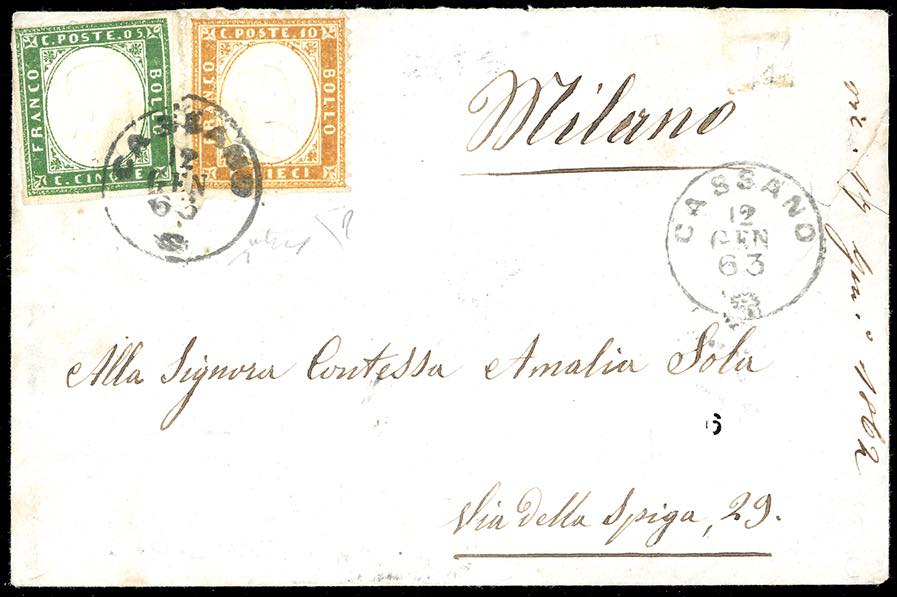 C. POSTE. 05.
FRANCO
BOLLO
C. CINQUE
C. POSTE. 10
FRANCO
BOLLO
CASSANO
12
GEN
63
Milano
CASSANO
12
GEN
63
Alla Signora Contessa Amalia Sola
6
Via della Spiga, 29.
1862